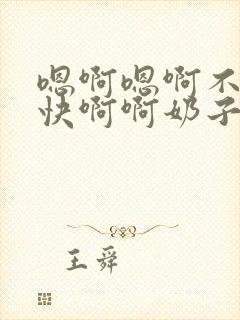 嗯啊嗯啊不
快啊啊奶子
王舜